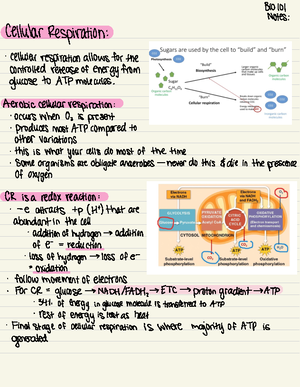 BIO 101
Notes:
Cellular Respiration:
• cellular respiration allows for the
controlled release of energy from
glucose to ATP molecules.
Sugars are used by the cell to "build" and "burn"
Photosynthesis
"Build"
Biosynthesis
Sugar
C₆H₁₂O₆
"Burn"
Cellular respiration
Aerobic cellular respiration:
• occurs when O₂ is present
• produces most ATP compared to
other variations
• this is what your cells do most of the time
• Some organisms are obligate anaerobes – never do this & die in the presence
of oxygen
CR is a redox reaction:
• -e attracts +p (H⁺) that are
abundant in the cell
• addition of hydrogen → addition
of e⁻ = reduction
• loss of hydrogen → loss of e⁻
= oxidation
Electrons
via NADH
Electrons via
NADH and FADH₂
GLYCOLYSIS
Glucose
Pyruvate
PYRUVATE
OXIDATION
Acetyl CoA
CITRIC
ACID
CYCLE
OXIDATIVE
PHOSPHORYLATION
CYTOSOL
MITOCHONDRION
CO₂
ATP
ATP
ATP
Substrate-level
phosphorylation
Substrate-level
phosphorylation
Oxidative
phosphorylation
• follow movement of electrons
• For CR = glucose → NADH/FADH₂ → ETC → proton gradient → ATP
• 34% of energy in glucose molecule is transferred to ATP
• rest of energy is lost as heat
• Final stage of cellular respiration is where majority of ATP is
generated